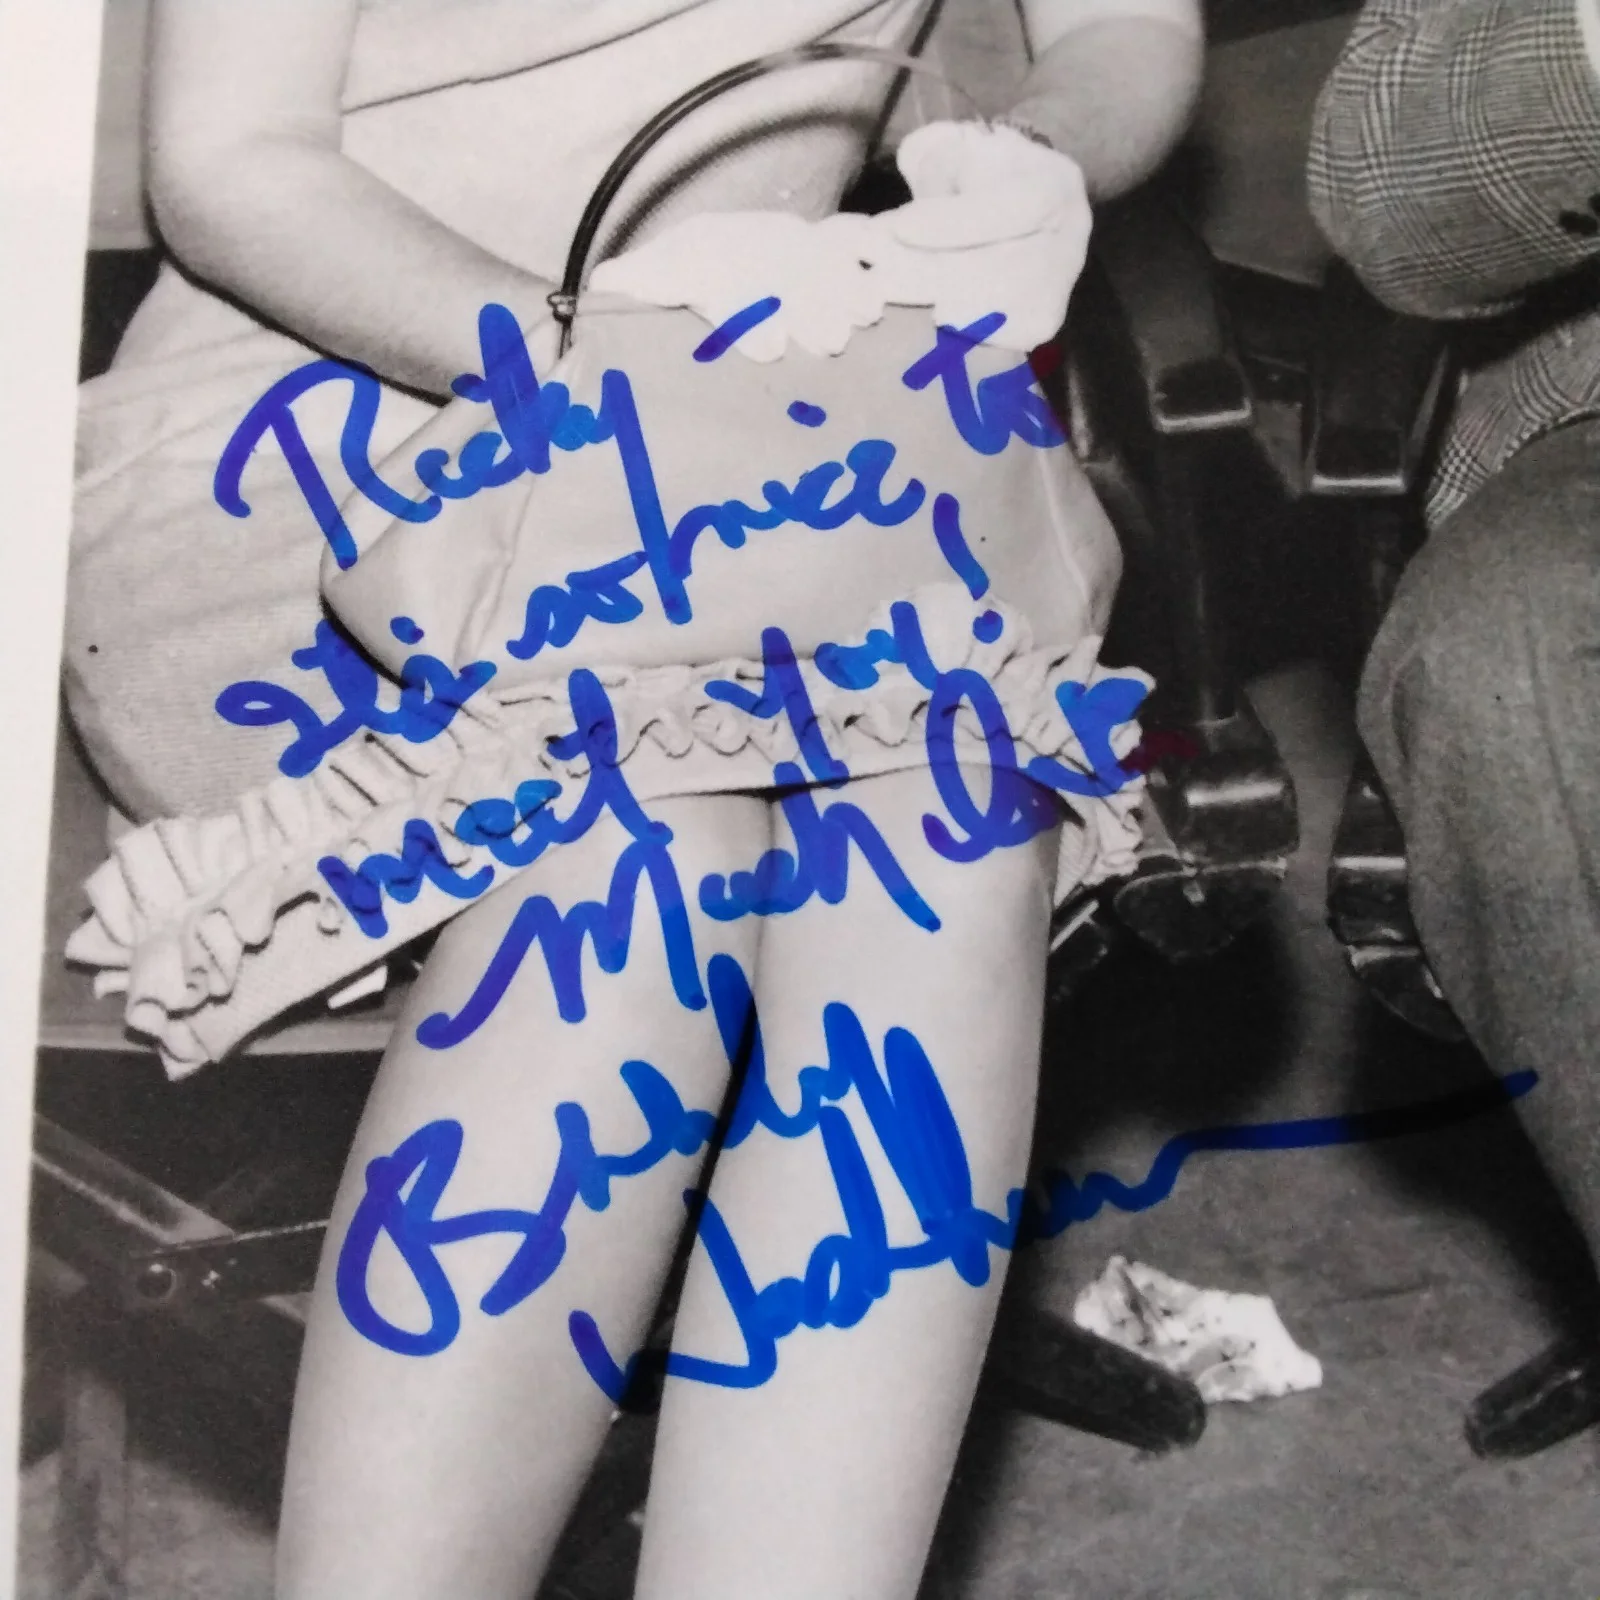 Ricky –
It's so nice to
meet you!
Much love
Beverly
Washburn